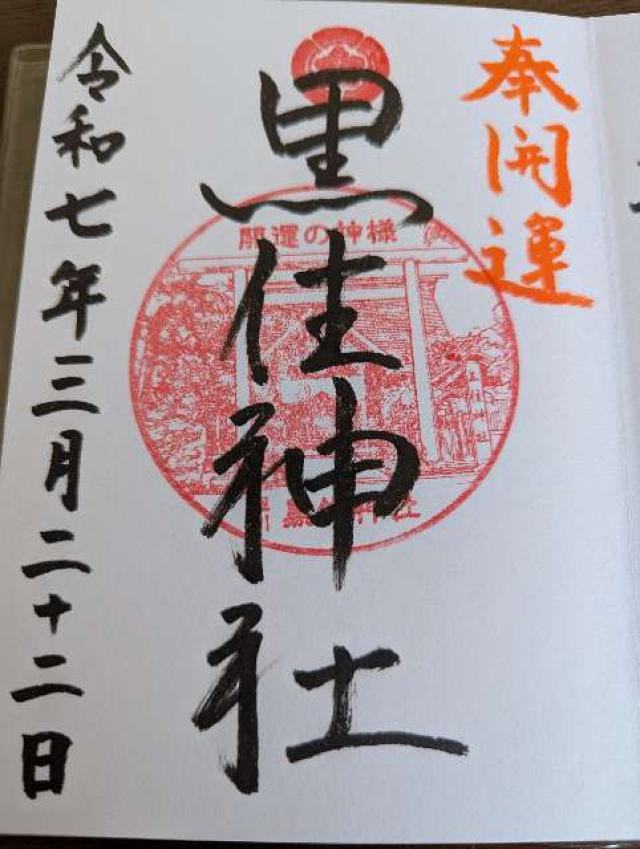 奉開運
黒住神社
開運の神様
令和七年三月二十二日